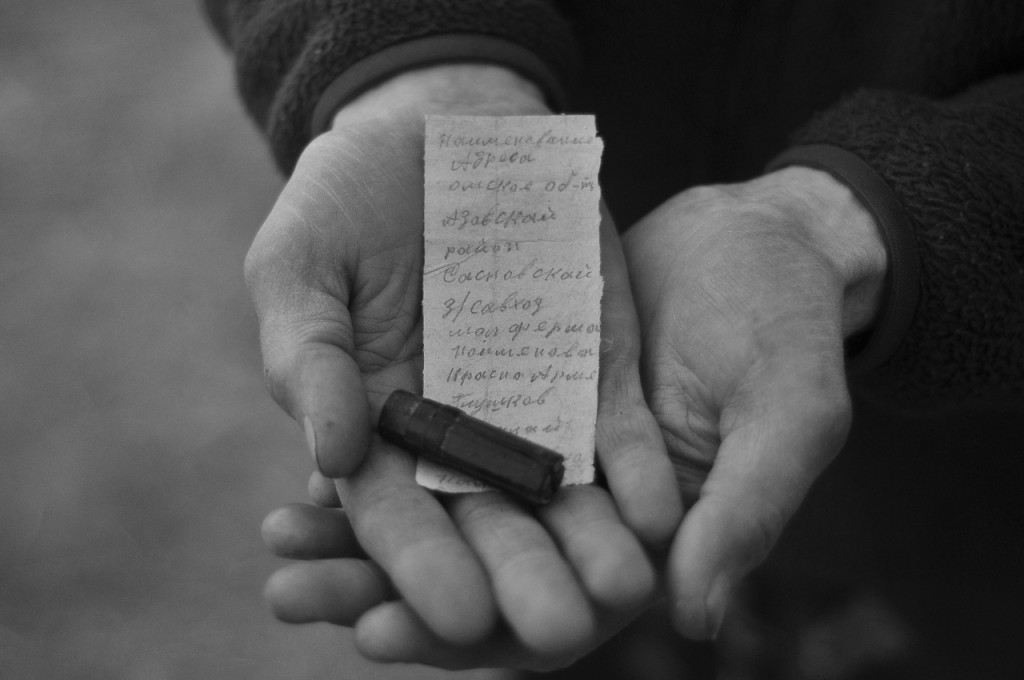 Наименование
Адреса
омская об-т
Азовский
район
Сасновский
з/савхоз
мол ферма
Наименован
Красно Арме
Глушков